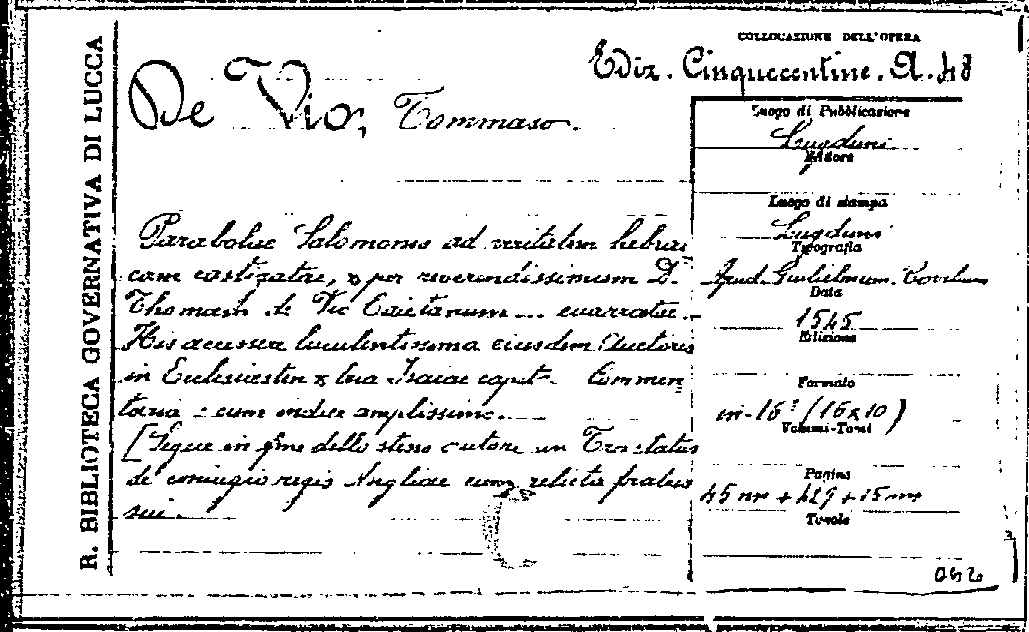 R. BIBLIOTECA GOVERNATIVA DI LUCCA
COLLOCAZIONE DELL'OPERA
Ediz. Cinquecentine. A. 48
De Vio, Tommaso.
Parabolae Salomonis ad veritatem hebrai
cam castigatae, & per reverendissimum D.
Thomam de Vio Caietanum ... enarratae.
His accessere luculentissima eiusdem Auctoris
in Ecclesiasten & tria Isaiae capit. Commen
taria: cum indice amplissimo.
[Segue in fine dello stesso autore un Tractatus
de coniugio regis Angliae cum relicta fratris
sui.
Luogo di Pubblicazione
Lugduni
Editore
Luogo di stampa
Lugduni
Tipografia
Apud Gulielmum
Data
1545
Edizione
Formato
in-16° (16x10)
Volumi-Tomi
Pagine
45 nn + 429 + 15 nn
Tavole